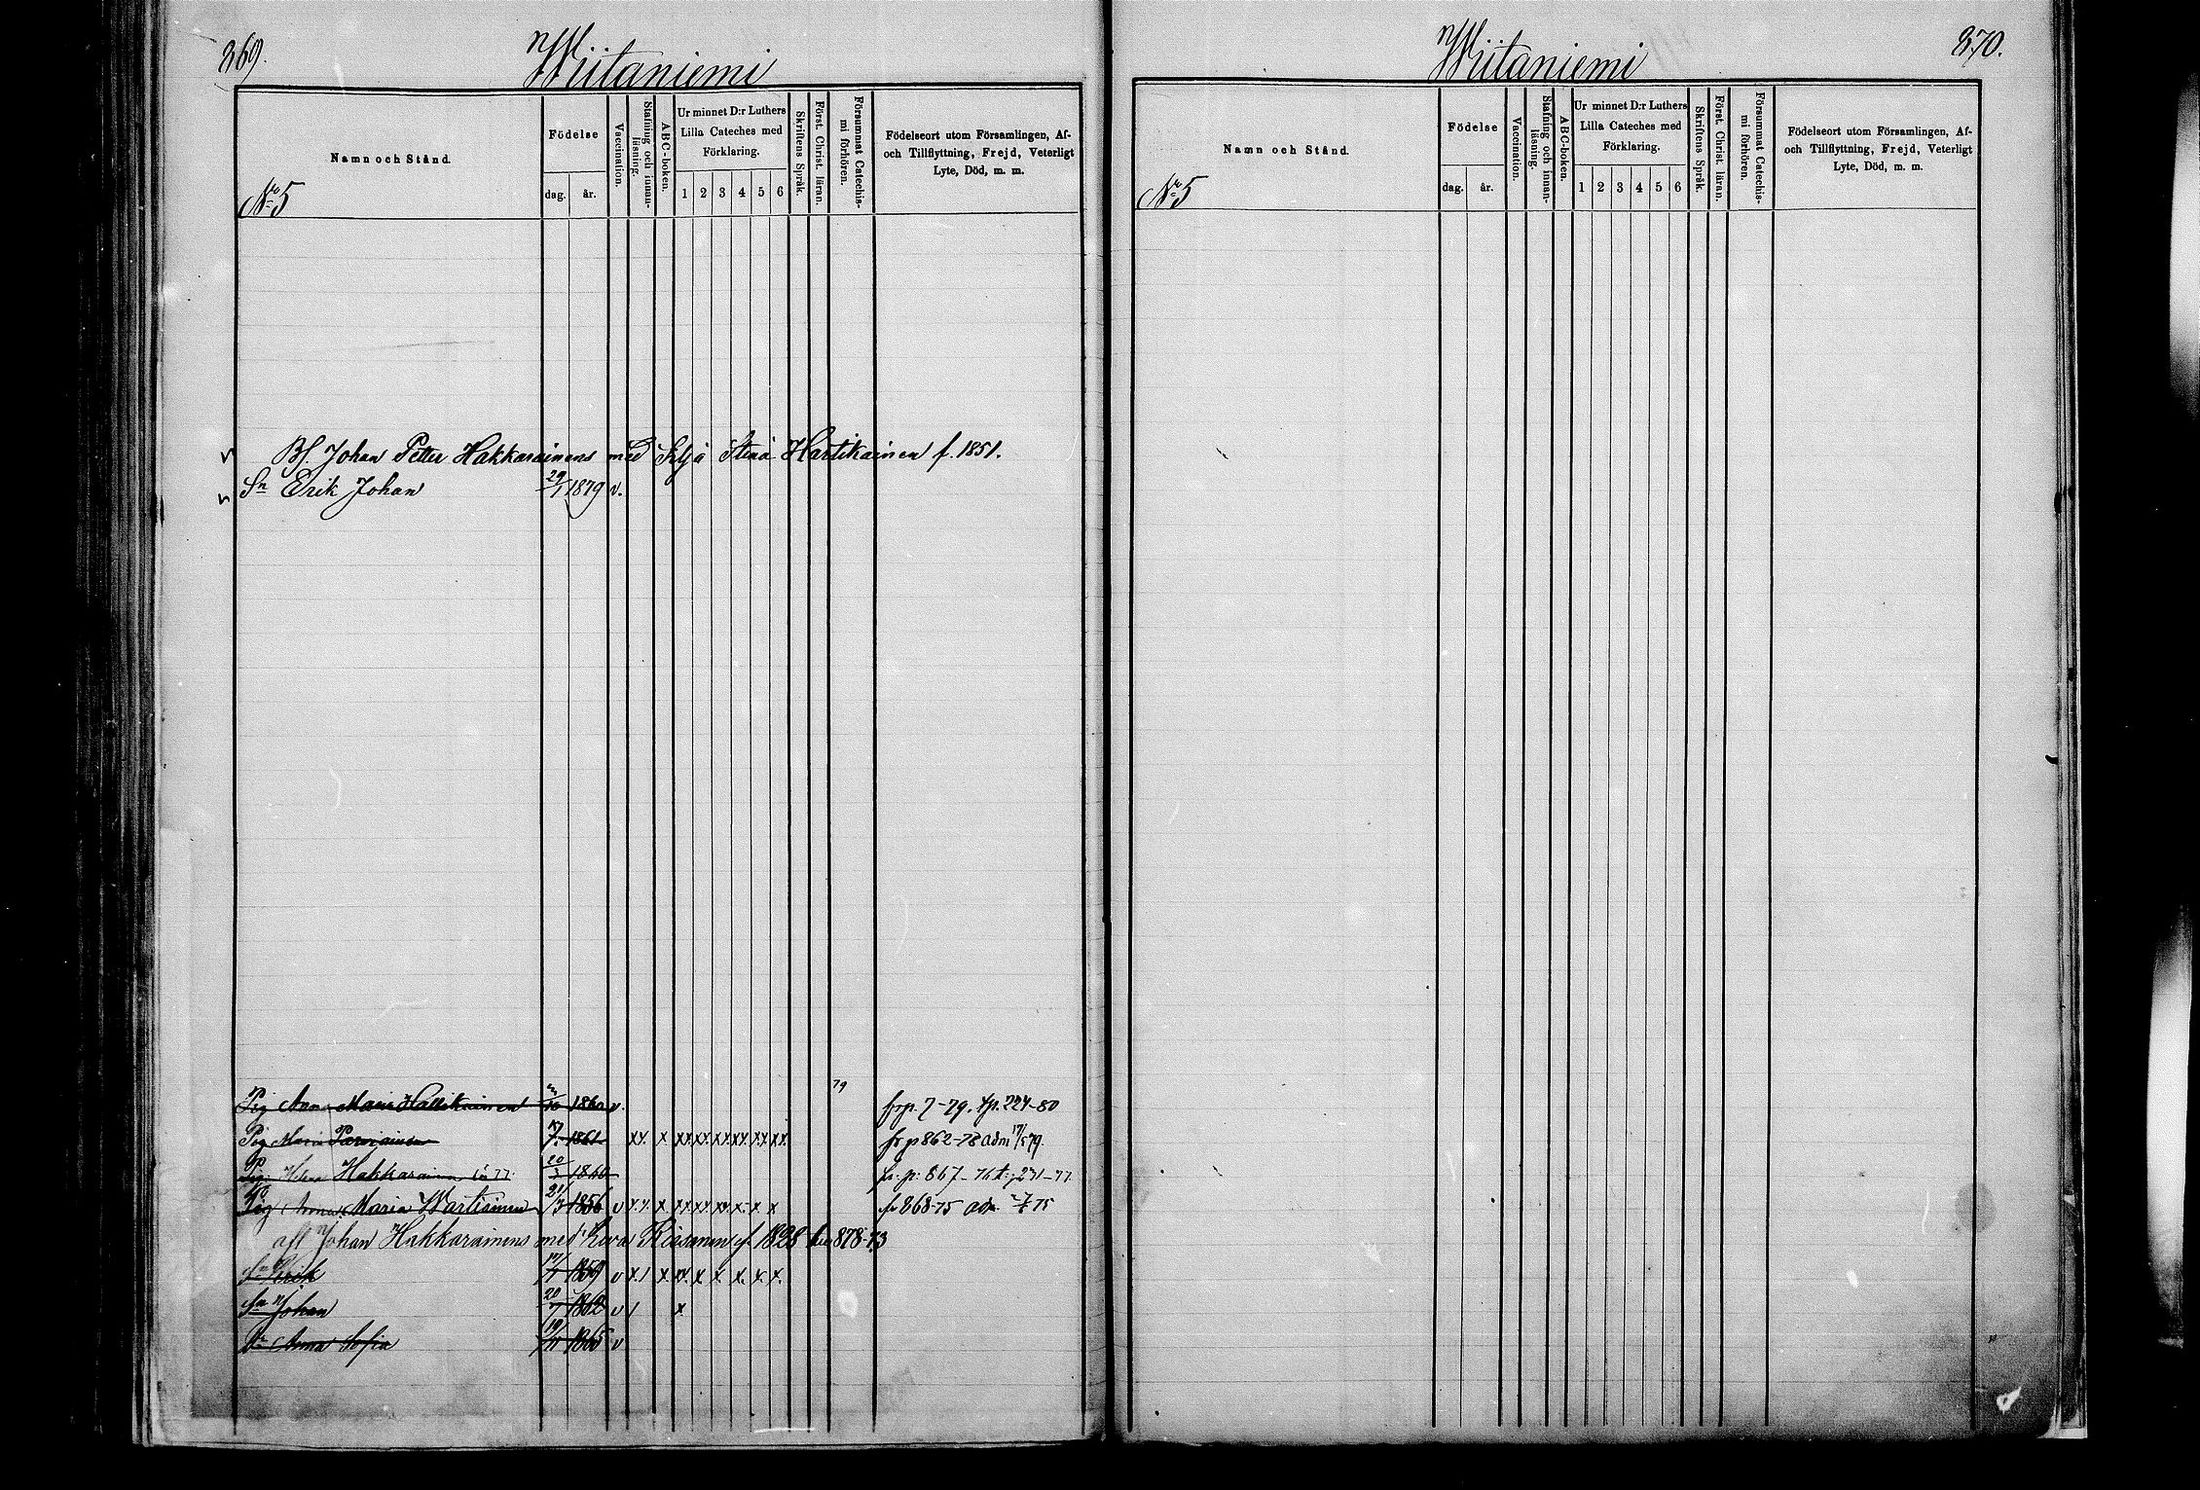 869.
Wiitaniemi
Namn och Stånd.
Födelse
dag. år.
Vaccination.
Stafning och innanläsning.
ABC-boken.
Ur minnet D:r Luthers
Lilla Cateches med
Förklaring.
1 2 3 4 5 6
Skriftens Språk.
Först. Christ. läran.
Försummat Catechismi förhören.
Födelseort utom Församlingen, Af-
och Tillflyttning, Frejd, Veterligt
Lyte, Död, m. m.
No 5
Johan Petter Hakkarainens med Stina Hartikainen f. 1851.
Sn Erik Johan 29/1 1879 v.
79
Pig Anna Maria v.
Pig Maria 1861 xx x xx xx xx xx xx xx fr p 862-78
Pig Hakkarainen 20/3 1860
Pig Anna Maria 21/3 1856 v 868-75
Johan Hakkarainens med Eva f. 1828 878-73
Sn Erik 1859 v
Sn Johan 20 1862 v / x
Dr Anna Sofia 19 1865 v
Wiitaniemi
870.
Namn och Stånd.
Födelse
dag. år.
Vaccination.
Stafning och innanläsning.
ABC-boken.
Ur minnet D:r Luthers
Lilla Cateches med
Förklaring.
1 2 3 4 5 6
Skriftens Språk.
Först. Christ. läran.
Försummat Catechismi förhören.
Födelseort utom Församlingen, Af-
och Tillflyttning, Frejd, Veterligt
Lyte, Död, m. m.
No 5